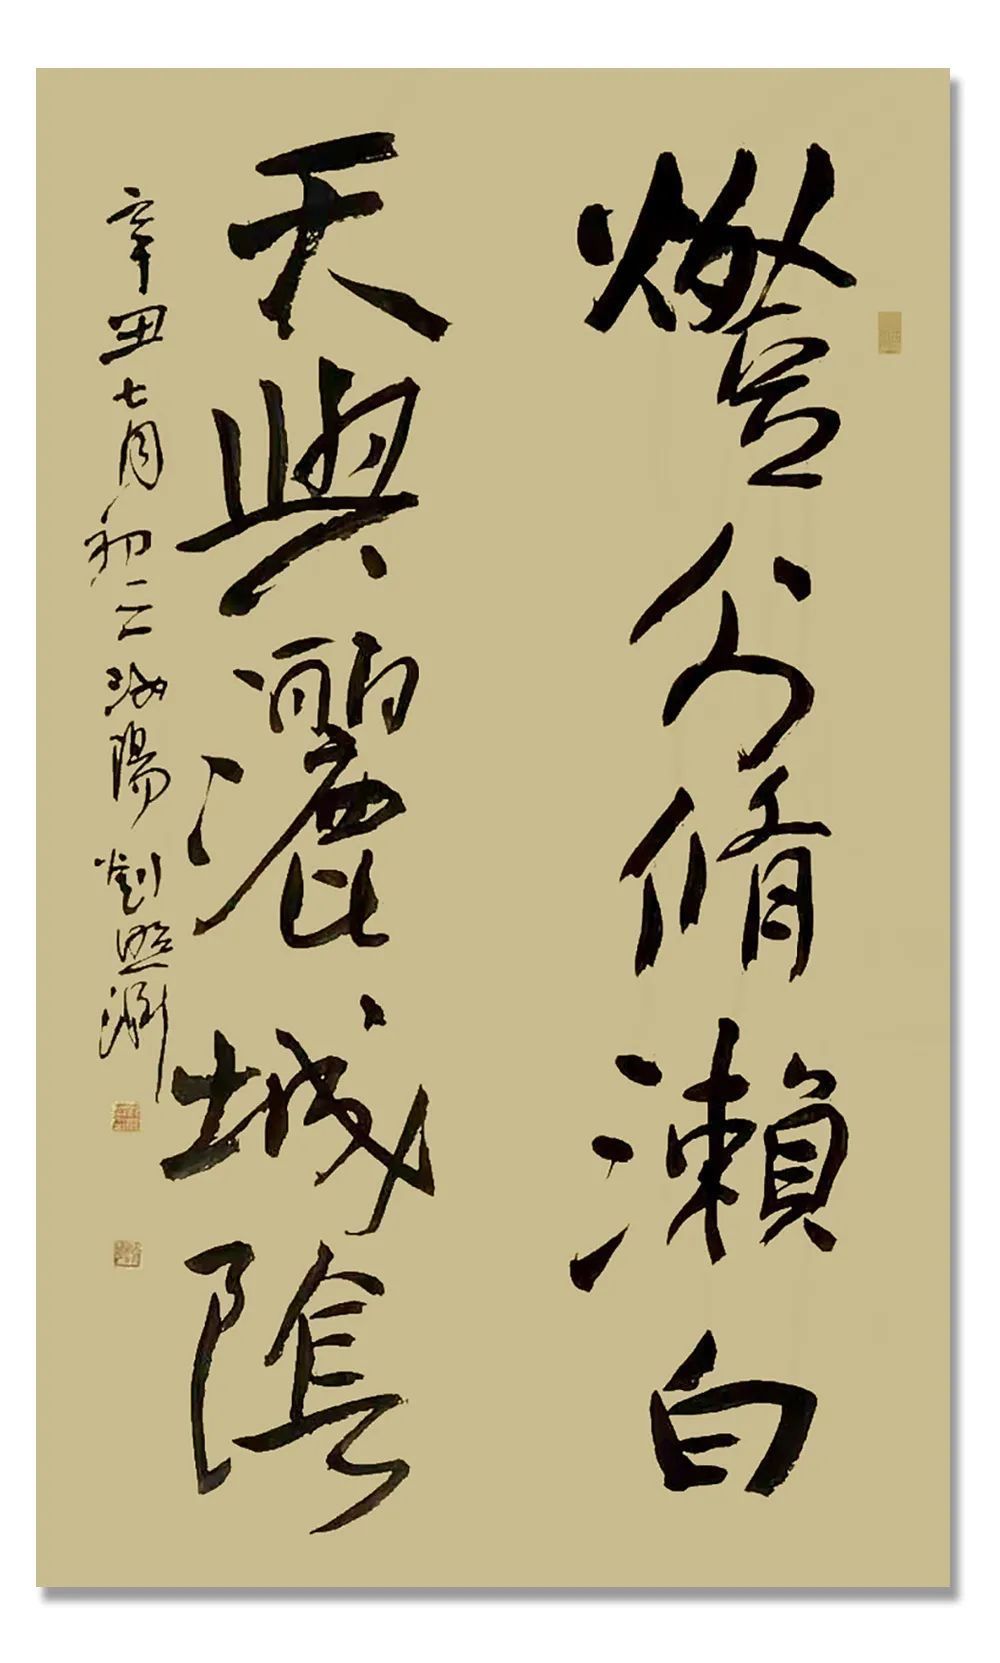 燈分脩瀨白
天與灑城陰
辛丑七月初二陽劉照淵